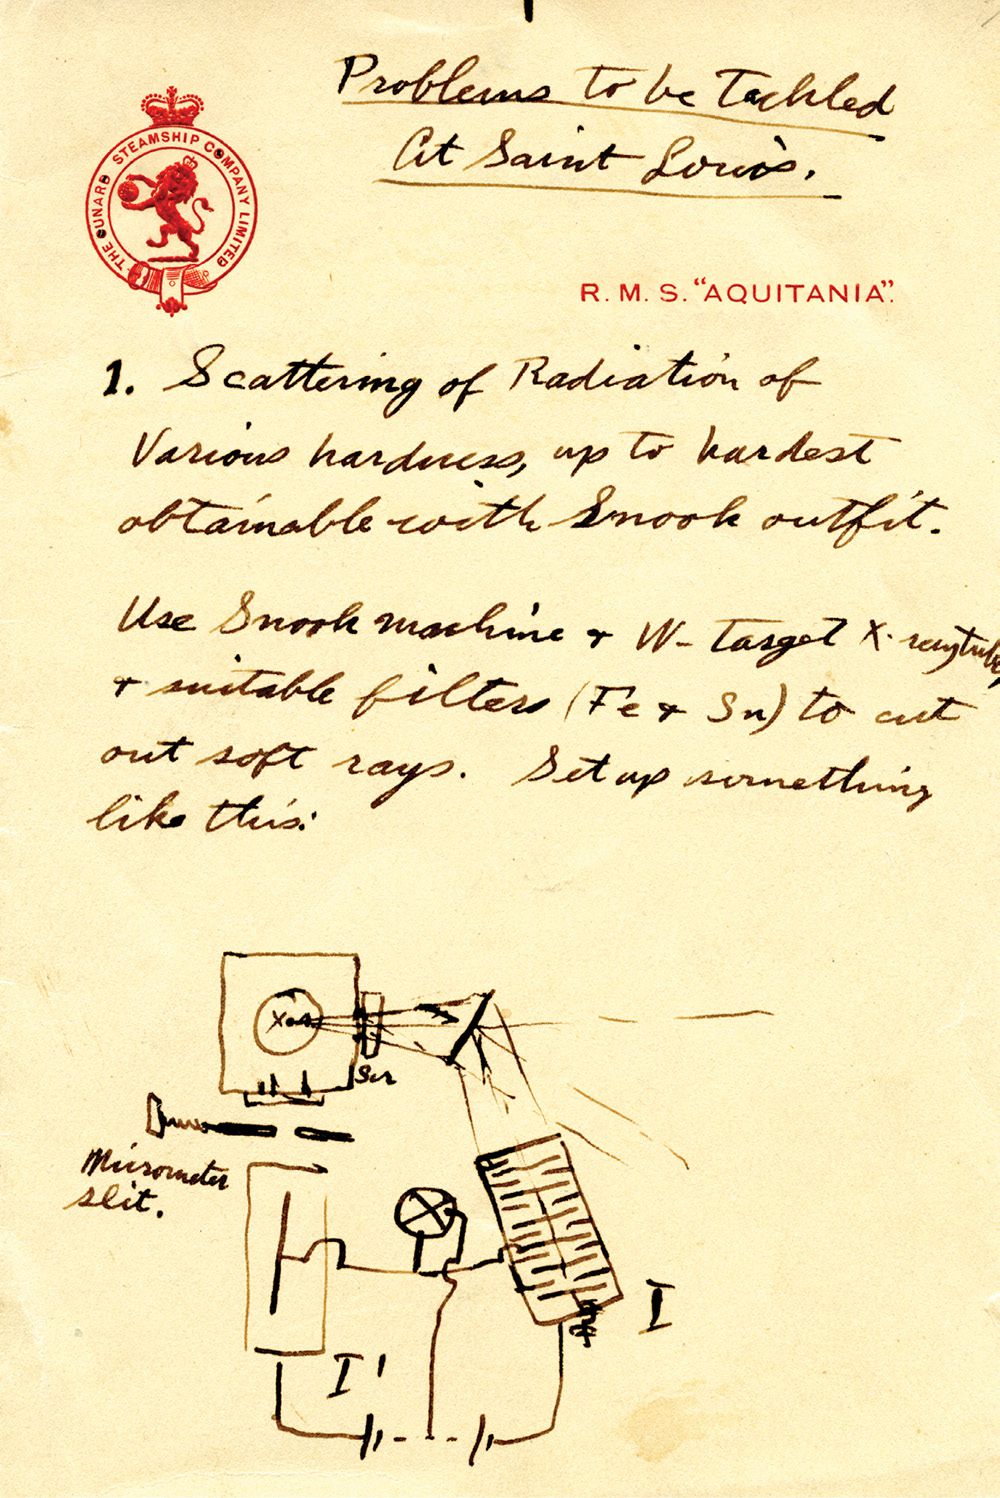 Problems to be Tackled
At Saint Louis.
THE CUNARD STEAMSHIP COMPANY LIMITED
R. M. S. "AQUITANIA".
1. Scattering of Radiation of
Various hardness, up to hardest
obtainable with Snook outfit.
Use Snook machine + W- target X-ray tube,
+ suitable filters (Fe + Sn) to cut
out soft rays. Set up something
like this:
Micrometer
slit.
I
I'